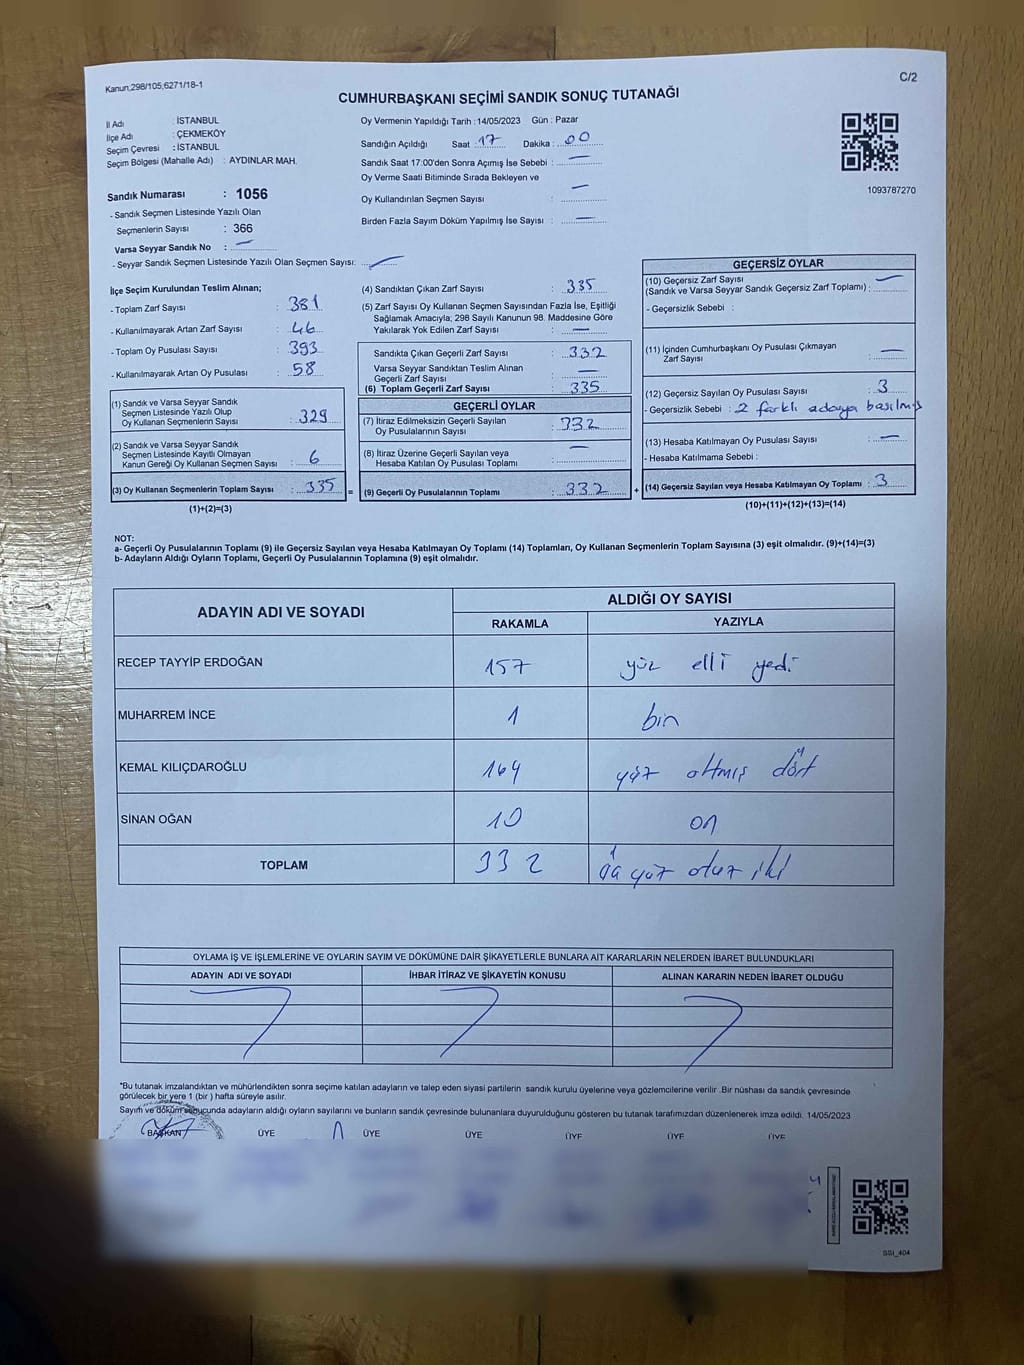 Kanun,298/105,6271/18-1
C/2
CUMHURBAŞKANI SEÇİMİ SANDIK SONUÇ TUTANAĞI
İl Adı : İSTANBUL
İlçe Adı : ÇEKMEKÖY
Seçim Çevresi : İSTANBUL
Seçim Bölgesi (Mahalle Adı) : AYDINLAR MAH.
Sandık Numarası : 1056
- Sandık Seçmen Listesinde Yazılı Olan
Seçmenlerin Sayısı : 366
Varsa Seyyar Sandık No :
- Seyyar Sandık Seçmen Listesinde Yazılı Olan Seçmen Sayısı:
Oy Vermenin Yapıldığı Tarih : 14/05/2023 Gün : Pazar
Sandığın Açıldığı Saat : 17 Dakika : 00
Sandık Saat 17:00'den Sonra Açımış İse Sebebi :
Oy Verme Saati Bitiminde Sırada Bekleyen ve
Oy Kullandırılan Seçmen Sayısı :
Birden Fazla Sayım Döküm Yapılmış İse Sayısı :
1093787270
İlçe Seçim Kurulundan Teslim Alınan;
- Toplam Zarf Sayısı : 381
- Kullanılmayarak Artan Zarf Sayısı : 46
- Toplam Oy Pusulası Sayısı : 393
- Kullanılmayarak Artan Oy Pusulası : 58
(1) Sandık ve Varsa Seyyar Sandık
Seçmen Listesinde Yazılı Olup
Oy Kullanan Seçmenlerin Sayısı : 329
(2) Sandık ve Varsa Seyyar Sandık
Seçmen Listesinde Kayıtlı Olmayan
Kanun Gereği Oy Kullanan Seçmen Sayısı : 6
(3) Oy Kullanan Seçmenlerin Toplam Sayısı : 335 =
(1)+(2)=(3)
(4) Sandıktan Çıkan Zarf Sayısı : 335
(5) Zarf Sayısı Oy Kullanan Seçmen Sayısından Fazla İse, Eşitliği
Sağlamak Amacıyla; 298 Sayılı Kanunun 98. Maddesine Göre
Yakılarak Yok Edilen Zarf Sayısı :
Sandıkta Çıkan Geçerli Zarf Sayısı : 332
Varsa Seyyar Sandıktan Teslim Alınan
Geçerli Zarf Sayısı :
(6) Toplam Geçerli Zarf Sayısı : 335
GEÇERLİ OYLAR
(7) İtiraz Edilmeksizin Geçerli Sayılan
Oy Pusulasının Sayısı : 332
(8) İtiraz Üzerine Geçerli Sayılan veya
Hesaba Katılan Oy Pusulası Toplamı :
(9) Geçerli Oy Pusulalarının Toplamı : 332 +
GEÇERSİZ OYLAR
(10) Geçersiz Zarf Sayısı
(Sandık ve Varsa Seyyar Sandık Geçersiz Zarf Toplamı) :
- Geçersizlik Sebebi :
(11) İçinden Cumhurbaşkanı Oy Pusulası Çıkmayan
Zarf Sayısı :
(12) Geçersiz Sayılan Oy Pusulası Sayısı : 3
- Geçersizlik Sebebi : 2 farklı adaya basılmış
(13) Hesaba Katılmayan Oy Pusulası Sayısı :
- Hesaba Katılmama Sebebi :
(14) Geçersiz Sayılan veya Hesaba Katılmayan Oy Toplamı : 3
(10)+(11)+(12)+(13)=(14)
NOT:
a- Geçerli Oy Pusulalarının Toplamı (9) ile Geçersiz Sayılan veya Hesaba Katılmayan Oy Toplamı (14) Toplamları, Oy Kullanan Seçmenlerin Toplam Sayısına (3) eşit olmalıdır. (9)+(14)=(3)
b- Adayların Aldığı Oyların Toplamı, Geçerli Oy Pusulalarının Toplamına (9) eşit olmalıdır.
ADAYIN ADI VE SOYADI ALDIĞI OY SAYISI
RAKAMLA YAZIYLA
RECEP TAYYİP ERDOĞAN 157 yüz elli yedi
MUHARREM İNCE 1 bin
KEMAL KILIÇDAROĞLU 164 yüz altmış dört
SİNAN OĞAN 10 on
TOPLAM 332 yüz otuz iki
OYLAMA İŞ VE İŞLEMLERİNE VE OYLARIN SAYIM VE DÖKÜMÜNE DAİR ŞİKAYETLERLE BUNLARA AİT KARARLARIN NELERDEN İBARET BULUNDUKLARI
ADAYIN ADI VE SOYADI İHBAR İTİRAZ VE ŞİKAYETİN KONUSU ALINAN KARARIN NEDEN İBARET OLDUĞU
*Bu tutanak imzalandıktan ve mühürlendikten sonra seçime katılan adayların ve talep eden siyasi partilerin sandık kurulu üyelerine veya gözlemcilerine verilir .Bir nüshası da sandık çevresinde
görülecek bir yere 1 (bir ) hafta süreyle asılır.
Sayım ve döküm sonucunda adayların aldığı oyların sayılarını ve bunların sandık çevresinde bulunanlara duyurulduğunu gösteren bu tutanak tarafımızdan düzenlenerek imza edildi. 14/05/2023
BAŞKAN ÜYE ÜYE ÜYE ÜYE ÜYE ÜYE
SSI_404